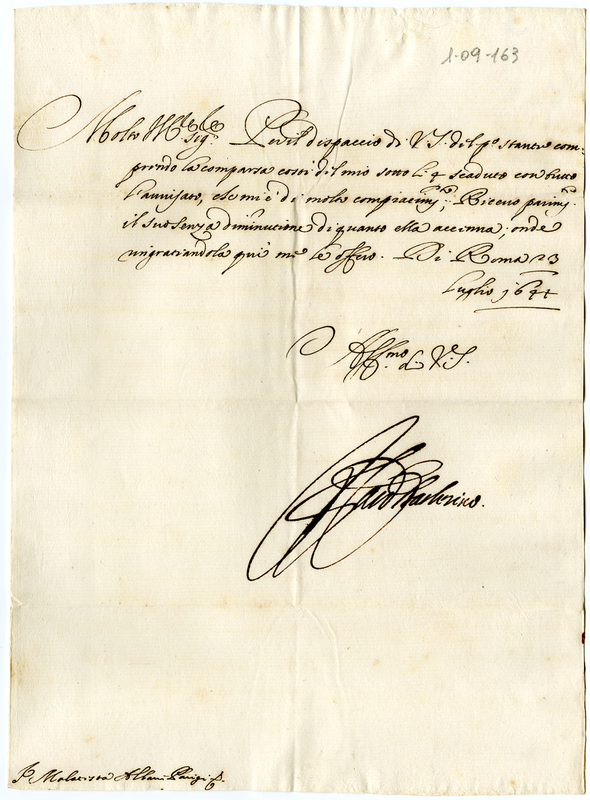 1-09-163
Molto Ill.re Sig.re Per il dispaccio di V.S. del p.o stante com-
prendo la comparsa costì del mio sotto li 4 scaduto con tutto
l'auuisato, che mi è di molto compiacim.to; Riceuo parim.te
il suo senza diminutione di quanto ella accenna; onde
ringratiandola qui me le offero. Di Roma 23
Luglio 1644
Aff.mo di V.S.
Barberino.
S. Malatesta Albani Parigi